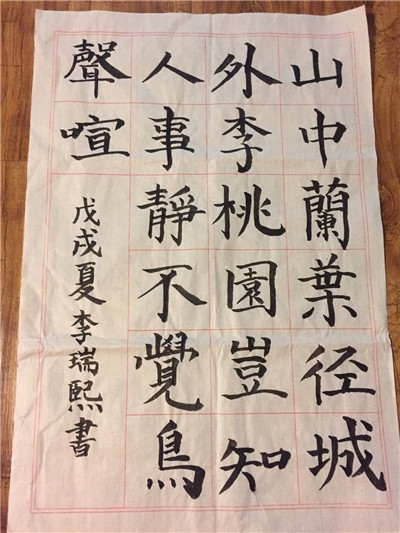 山中蘭葉径城
外李桃園豈知
人事靜不覺鳥
聲喧
戊戌夏李瑞熙書